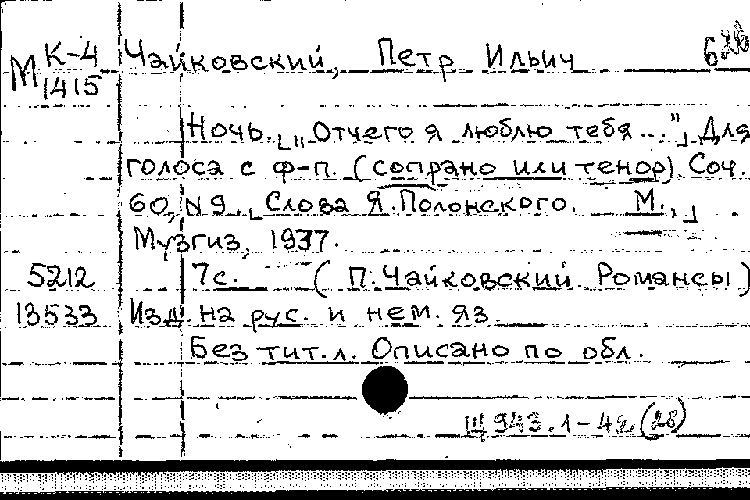 М К-4 Чайковский, Петр Ильич
1415
Ночь. [„Отчего я люблю тебя..."] Для
голоса с ф-п. (сопрано или тенор) Соч.
60, №9. [Слова Я.Полонского. М.,]
Музгиз, 1937.
5212 7с. (П.Чайковский. Романсы)
13533 Изд. на рус. и нем. яз.
Без тит.л. Описано по обл.
Щ 943.1-42 (28)